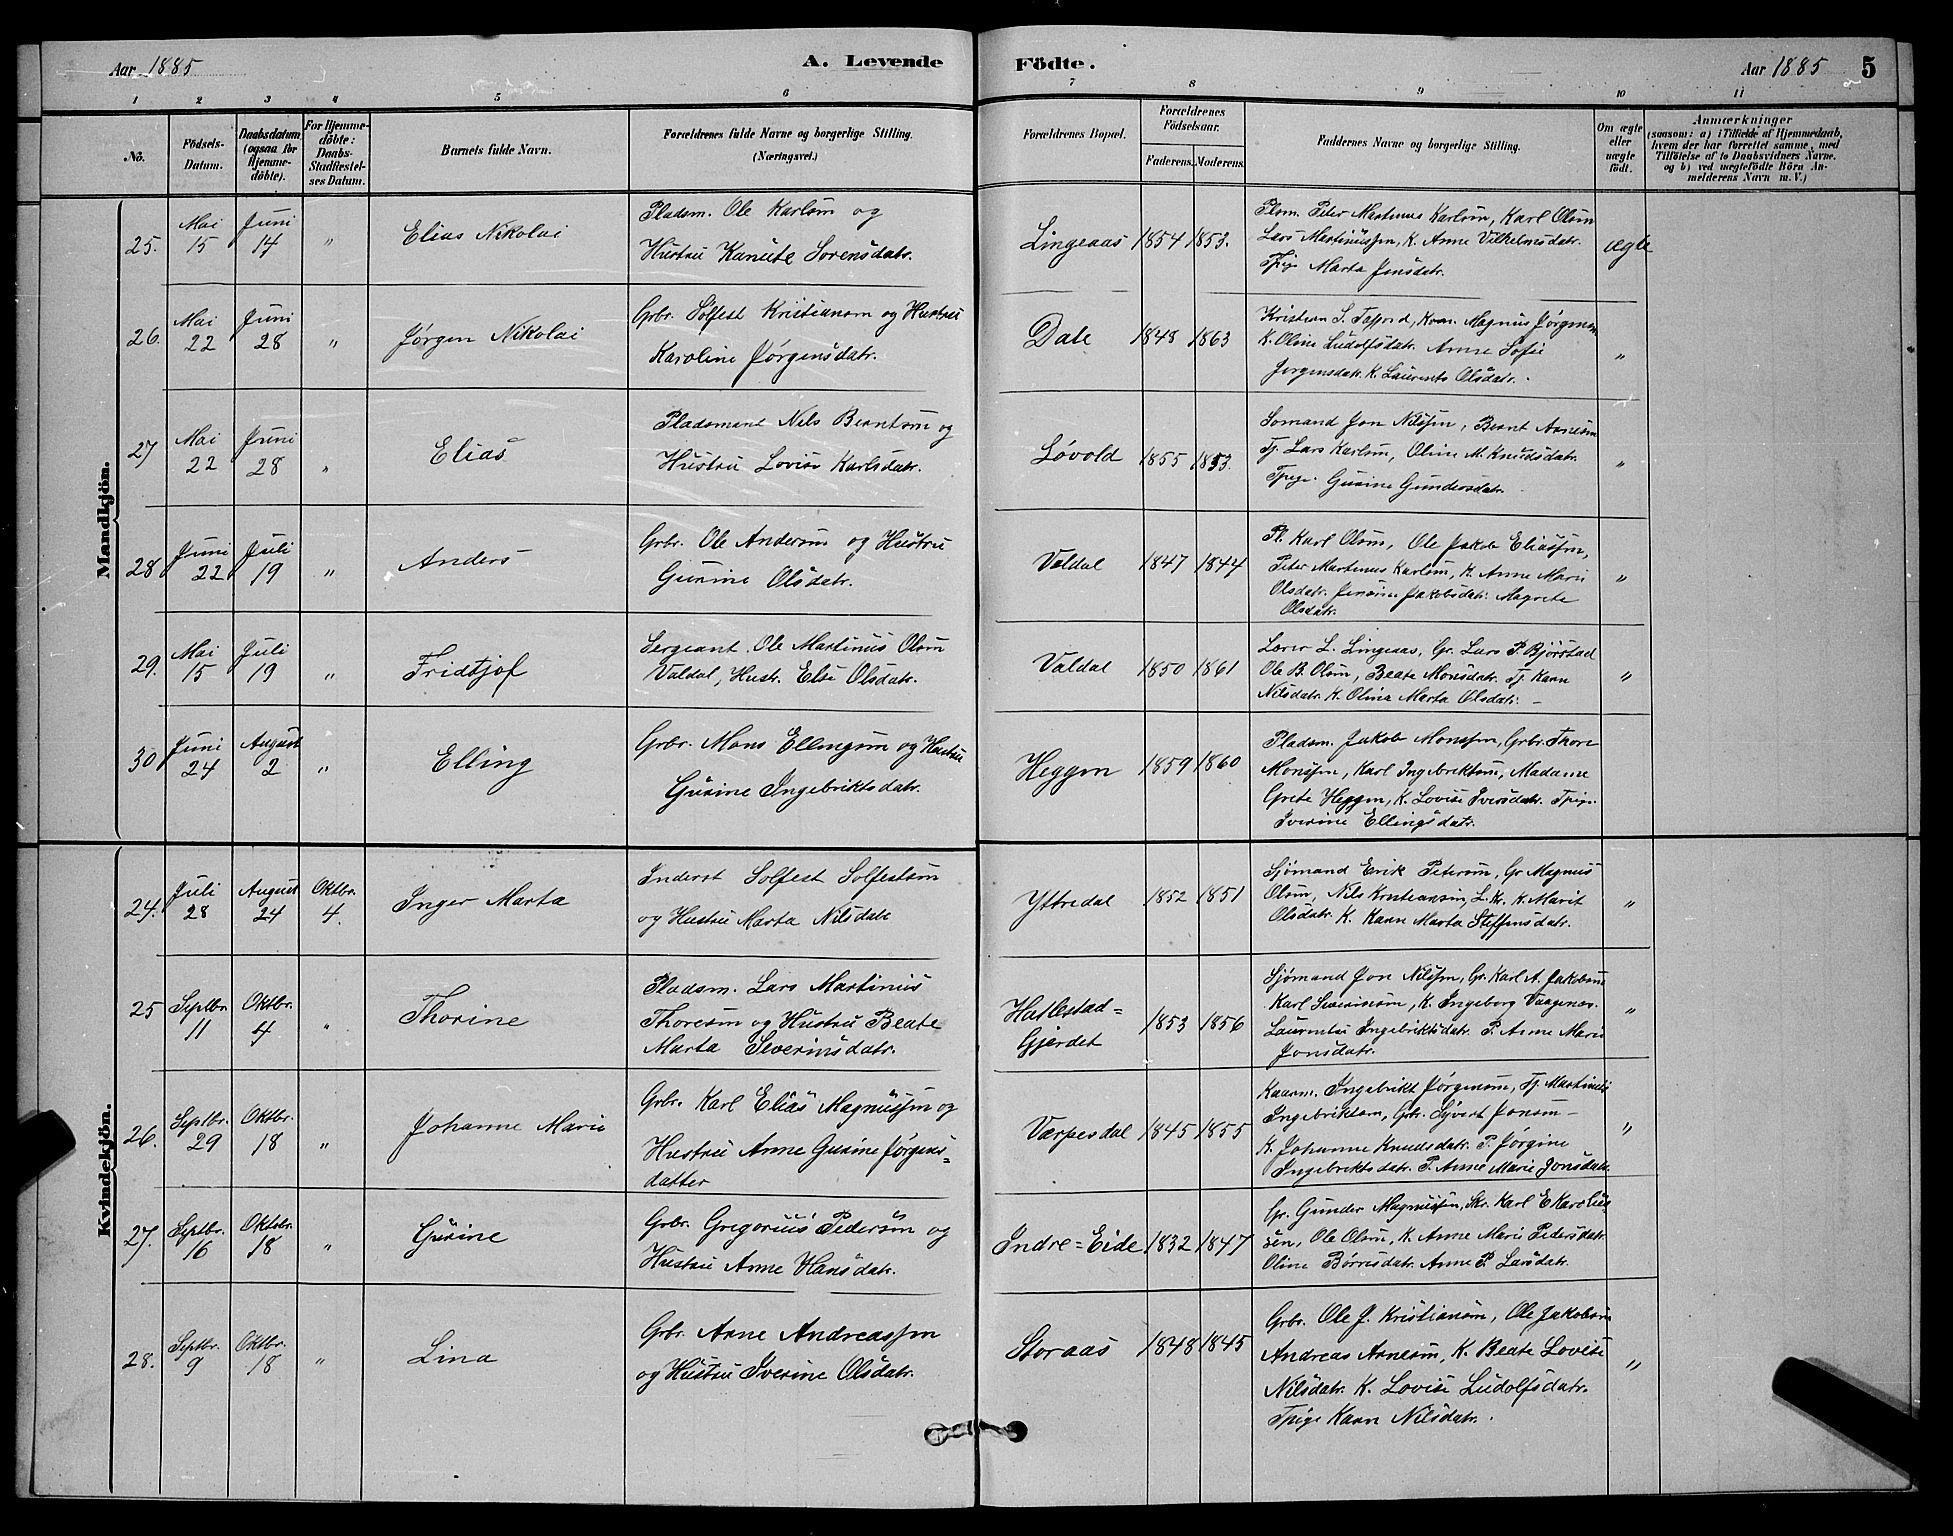 Aar 1885
A. Levende
Födte.
Aar 1885
5
1 2 3 4 5 6 7 8 9 10 11
No.
Födsels-
Datum.
Daabsdatum
(ogsaa for
Hjemme-
döbte).
For Hjemme-
döbte:
Daabs-
Stadfæstel-
ses Datum.
Barnets fulde Navn.
Forældrenes fulde Navne og borgerlige Stilling.
(Næringsvei.)
Forældrenes Bopæl.
Forældrenes
Födselsaar.
Faderens. Moderens.
Faddernes Navne og borgerlige Stilling.
Om ægte
eller
uægte
födt.
Anmærkninger
(saasom: a) i Tilfælde af Hjemmedaab,
hvem der har forrettet samme, med
Tilföielse af to Daabsvidners Navne,
og b) ved uægtefödte Börn An-
melderens Navn m. V.)
Mandkjön.
25. Mai 15 Juni 14 " Elias Nikolai
Pladsm. Ole Karlsøn og
Hustru Kanute Sorensdatr.
Lingeaas 1854 1853.
Plsm. Peter Martenus Karlsøn, Karl Olsøn
Lars Martinussen, K. Anne Vilhelmsdatr.
Tpige Marta Jensdatr.
ægte
26. Mai 22 Juni 28 " Jørgen Nikolai
Grbr. Solfest Kristiansøn og Hustru
Karoline Jørgensdatr.
Dale 1848 1863
Kristian S. Tafjord, Kaar. Magnus Jørgensen
K. Oline Ludolfsdatr. Anne Sofie
Jørgensdatr. K. Laurents Olsdatr.
"
27 Mai 22 Juni 28 " Elias
Pladsmand Nils Berntsøn og
Hustru Lovise Karlsdatr.
Løvold 1855 1853.
Sømand Jon Nilssen, Bernt Arnesøn
Tj. Lars Karlsøn, Oline M. Knudsdatr.
Tpige Gurine Gundersdatr.
"
28 Juni 22 Juli 19 " Anders
Grbr. Ole Andersøn og Hustru
Gurine Olsdatr.
Valdal 1847 1844
Pl. Karl Olsøn, Ole Jakob Eliassen,
Peter Martenus Karlsøn, K. Anne Marie
Olsdatr. Jensine Jakobsdatr. Magrete
Olsdatr.
"
29. Mai 15 Juli 19 " Fridtjof
Sergeant. Ole Martinus Olsøn
Valdal, Hustr. Else Olsdatr.
Valdal 1850 1861
Lærer L. Lingeaas, Gr. Lars P. Bjørstad
Ole B. Olsøn, Beate Monsdatr. Tj. Karn
Nilsdatr. K. Olina Marta Olsdatr. –
"
30 Juni 24 August 2 " Elling
Grbr. Mons Ellingsøn og Hustru
Gurine Ingebriktsdatr.
Heggen 1859 1860
Pladsm. Jakob Monssen, Grbr. Thore
Monssen, Karl Ingebriktsøn, Madame
Grete Heggen, K. Lovise Iversdatr. Tpige
Iverine Ellingsdatr.
Kvindekjön.
24. Juli 28 August 24 Oktbr. 4. Inger Marta
Inderst Solfest Solfestsøn
og Hustru Marta Nilsdatr
Yttredal 1852 1851
Sjømand Erik Petersøn, Gr Magnus
Olsøn, Nils Kristiansøn, L. Kr. K. Marit
Olsdatr. K. Karn Marta Steffensdatr.
"
25 Septbr. 11 Oktbr. 4 " Thorine
Pladsm. Lars Martinus
Thoresøn og Hustru Beate
Marta Severinsdatr.
Hatlestad=
Gjerdet 1853 1856
Sjømand Jon Nilssen, Gr. Karl A. Jakobsen
Karl Severinsøn, K. Ingeborg Vaagenes.
Laurentse Ingebriktsdatr. P. Anne Marie
Jonsdatr.
"
26. Septbr. 29 Oktbr. 18 " Johanne Marie
Grbr. Karl Elias Magnussen og
Hustru Anne Gurine Jørgens=
datter
Værpesdal 1845 1855
Kaarm. Ingebrikt Jørgensøn, Tj. Martinus
Ingebriktsøn, Grbr. Syvert Jonsøn –
K. Johanne Knudsdatr. P. Jørgine
Ingebriktsdatr. P. Anne Marie Jonsdatr.
"
27. Septbr. 16 Oktobr. 18 " Gurine
Grbr. Gregorius Pedersøn og
Hustru Anne Hansdatr.
Indre=Eide 1832 1847
Gr. Gunder Magnussen, Skr. Karl E Karolius
sen, Ole Olsøn, K. Anne Marie Pedersdatr.
Oline Børresdatr. Anne P. Larsdatr.
28. Septbr. 9 Oktbr. 18 " Lina
Grbr. Arne Andreassen
og Hustru Iverine Olsdatr.
Storaas 1848 1845
Grbr. Ole J. Kristiansøn, Ole Jakobsøn
Andreas Arnesøn, K. Beate Lovise
Nilsdatr. K. Lovise Ludolfsdatr.
Tpige Karn Nilsdatr.
"